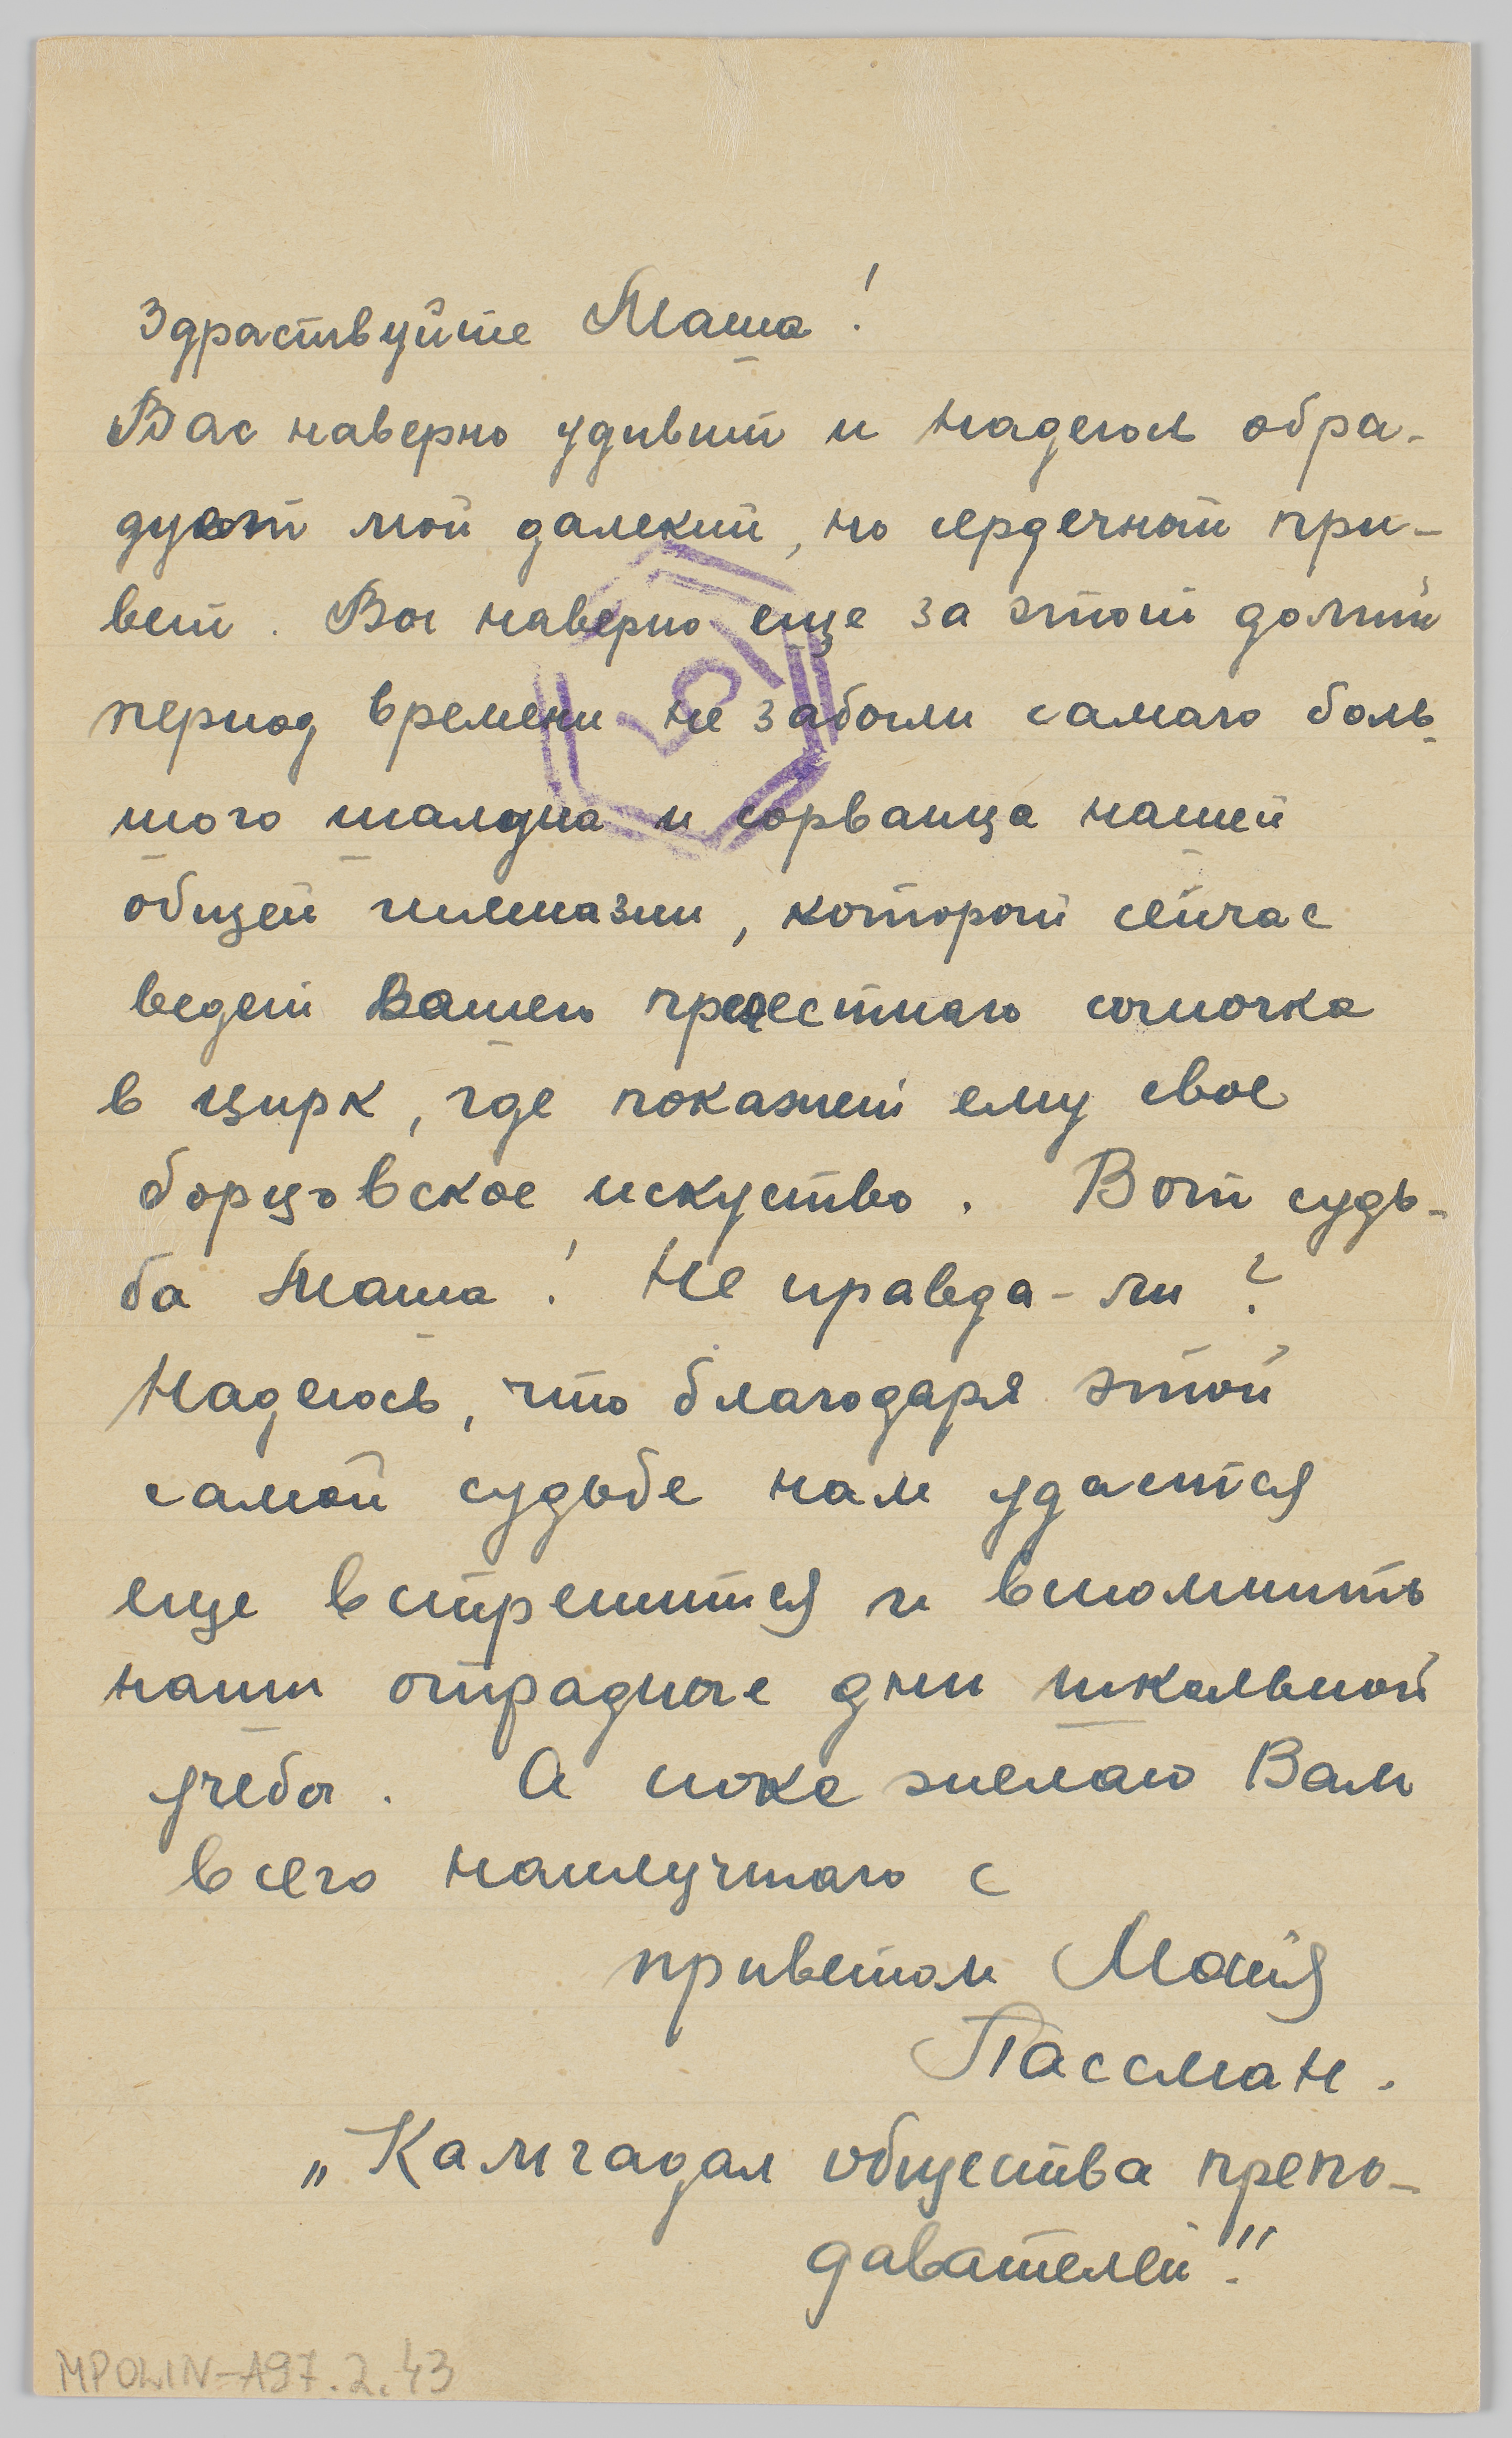 Здраствуйте Маша!
Вас наверно удивит и надеюсь обра-
дует мой далекий, но сердечный при-
вет. Вы наверно еще за этот долгий
период времени не забыли самаго боль-
шого шалуна и сорванца нашей
общей гимназии, который сейчас
ведет Вашего прелестнаго сыночка
в цирк, где покажет ему свое
борцовское искуство. Вот судь-
ба Маша! Не правда-ли?
Надеюсь, что благодаря этой
самой судьбе нам удастся
еще встретится и вспомнить
наши отрадные дни школьной
учебы. А пока желаю Вам
всего наилучшаго с
приветом Моня
Пассман.
„Камчадал общества препо-
давателей."
MPOLIN-A97.2.43